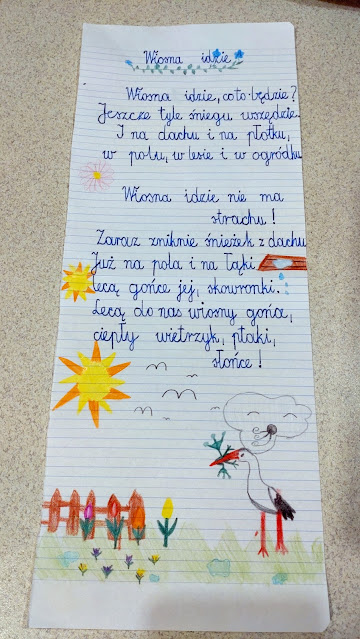 Wiosna idzie
Wiosna idzie, co to będzie?
Jeszcze tyle śniegu wszędzie.
I na dachu i na płotku,
w polu, w lesie i w ogródku
Wiosna idzie nie ma
strachu!
Zaraz zniknie śnieżek z dachu
Już na pola i na łąki
lecą gońce jej, skowronki.
Lecą do nas wiosny gońce,
ciepły wietrzyk, ptaki,
słońce!